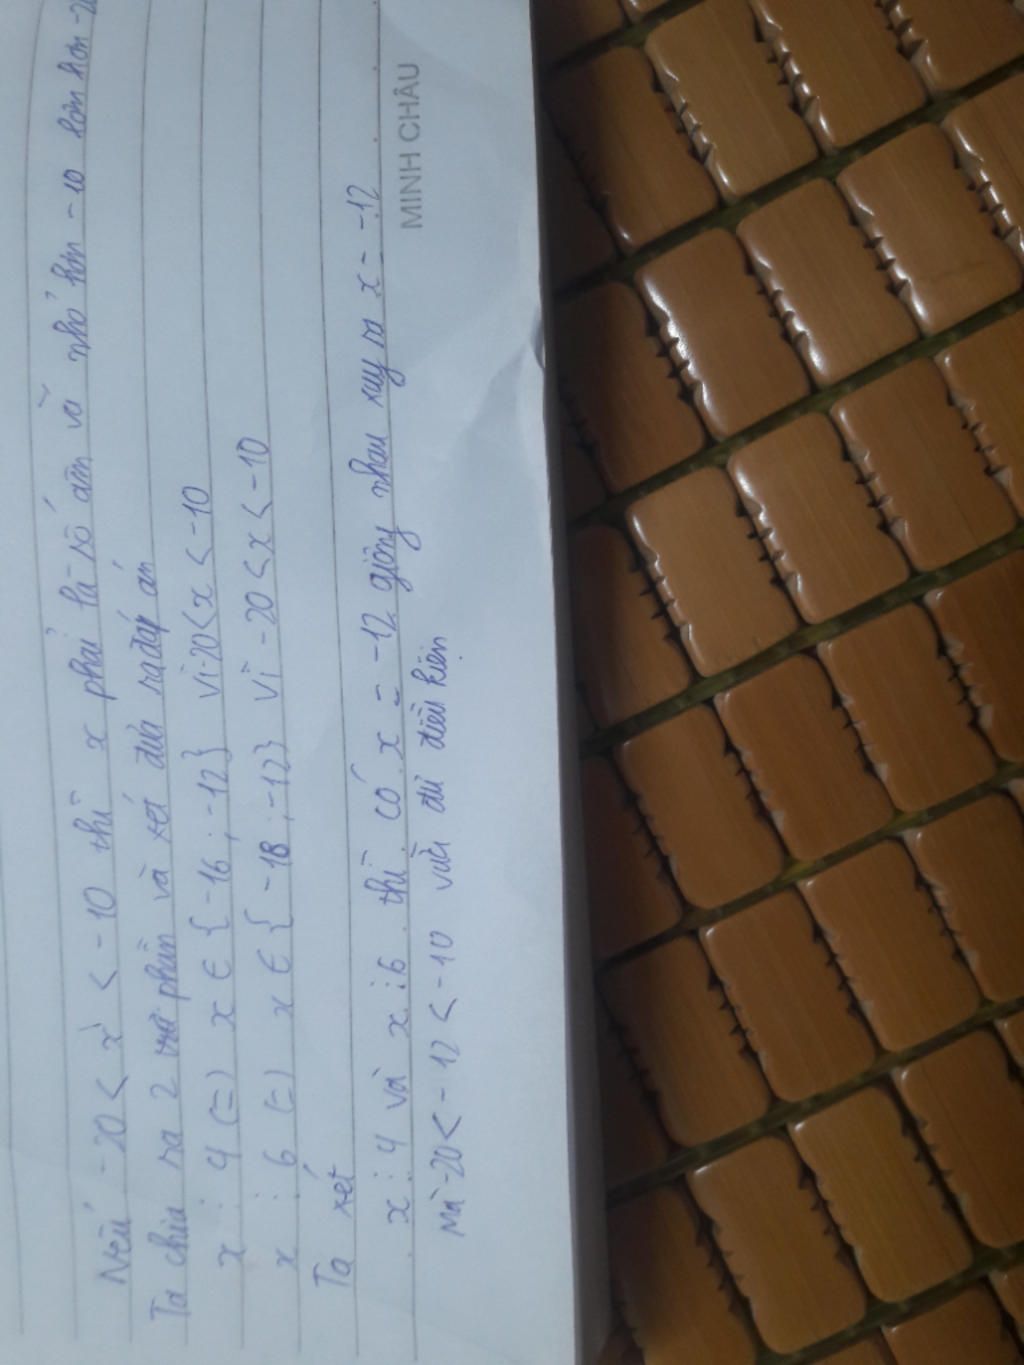 Nếu -20 < x < -10 thì x phải là số âm và nhỏ hơn -10 lớn hơn -20
Ta chia ra 2 phần và xét đưa ra đáp án
x ⋮ 4 (=) x ∈ { -16 ; -12 } vì -20 < x < -10
x ⋮ 6 (=) x ∈ { -18 ; -12 } vì -20 < x < -10
Ta xét
x ⋮ 4 và x ⋮ 6 thì có x = -12 giống nhau suy ra x = -12
Mà -20 < -12 < -10 vẫn đủ điều kiện
MINH CHÂU